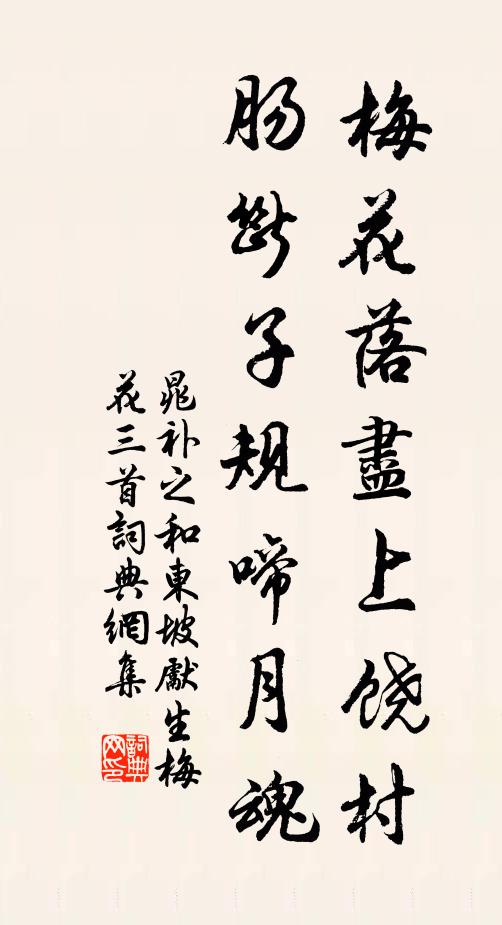 梅花落盡上饶村
肠斷子規啼月魂
晁补之和東坡獻生梅
花三首詞典網集
詞典
网印